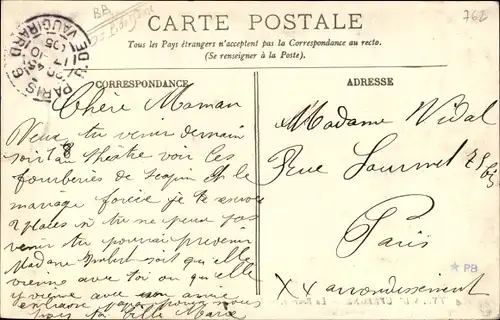 CARTE POSTALE
Tous les Pays étrangers n'acceptent pas la Correspondance au recto.
(Se renseigner à la Poste).
762
BB
PARIS
R. DE VAUGIRARD
CORRESPONDANCE
Chère Maman
Veux tu venir demain
soir au théâtre voir les
fourberies de scapin et le
mariage forcé je te envoie
2 places si tu ne peux pas
venir tu pourrai prévenir
Madame Imbert soit qu'elle
vienne avec toi ou qu'elle
y vienne avec une amie
nous
Marie
ADRESSE
Madame Vidal
Rue Lourmel
Paris
XV arrondissement
PB